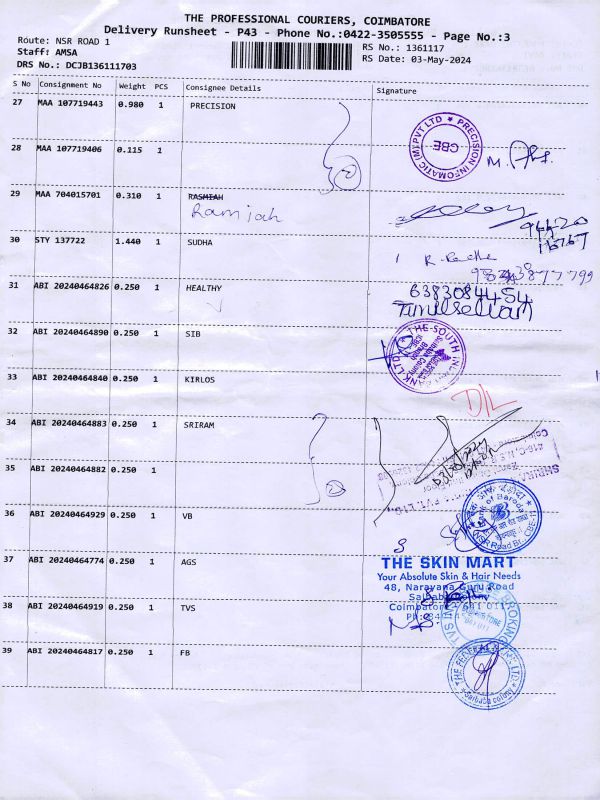 THE PROFESSIONAL COURIERS, COIMBATORE
Delivery Runsheet - P43 - Phone No.:0422-3505555 - Page No.:3
Route: NSR ROAD 1
RS No.: 1361117
Staff: AMSA
RS Date: 03-May-2024
DRS No.: DCJB136111703
S No Consignment No Weight PCS Consignee Details Signature
27 MAA 107719443 0.980 1 PRECISION
PRECISION INFOMATIC (M) PVT LTD ★
CBE
28 MAA 107719406 0.115 1
2
29 MAA 704015701 0.310 1 RASMIAH
Ramiah
94420
16767
30 STY 137722 1.440 1 SUDHA
R. Radha
31 ABI 20240464826 0.250 1 HEALTHY
6383084454
Tamilselvan
32 ABI 20240464890 0.250 1 SIB
33 ABI 20240464840 0.250 1 KIRLOS
D/L
34 ABI 20240464883 0.250 1 SRIRAM
35 ABI 20240464882 0.250 1
2
36 ABI 20240464929 0.250 1 VB
Bank of Baroda
NSR Road Br., CBE-11
37 ABI 20240464774 0.250 1 AGS
THE SKIN MART
Your Absolute Skin & Hair Needs
48, Narayana Guru Road
Saibaba Colony
Coimbatore - 641 011
38 ABI 20240464919 0.250 1 TVS
39 ABI 20240464817 0.250 1 FB
Saibaba colony